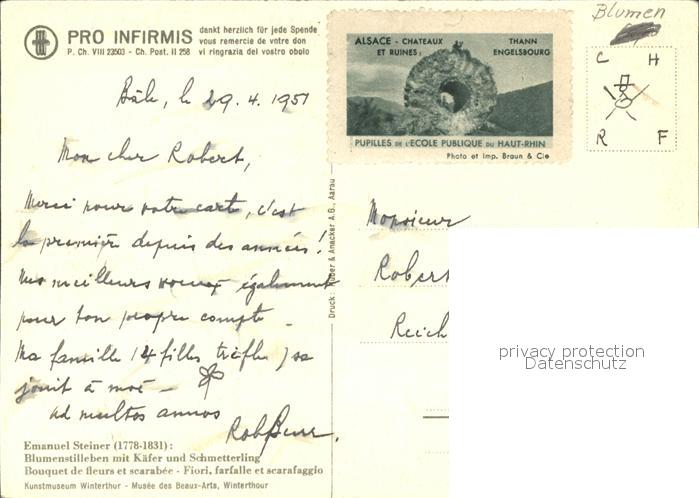 PRO INFIRMIS
P. Ch. VIII 23503 - Ch. Post. II 258
dankt herzlich für jede Spende
vous remercie de votre don
vi ringrazia del vostro obolo
ALSACE - CHATEAUX ET RUINES:
THANN ENGELSBOURG
PUPILLES DE L'ECOLE PUBLIQUE DU HAUT-RHIN
Photo et Imp. Braun & Cie
Blumen
C H
R F
Bâle, le 29.4.1951
Mon cher Robert,
Merci pour votre carte, c'est
la première depuis des années!
Mes meilleurs voeux également
pour ton propre compte -
Ma famille
ad multos annos
Druck: Huber & Anacker A.G., Aarau
Monsieur
Robert
Reich
privacy protection
Datenschutz
Emanuel Steiner (1778-1831):
Blumenstilleben mit Käfer und Schmetterling
Bouquet de fleurs et scarabée - Fiori, farfalle et scarafaggio
Kunstmuseum Winterthur - Musée des Beaux-Arts, Winterthour